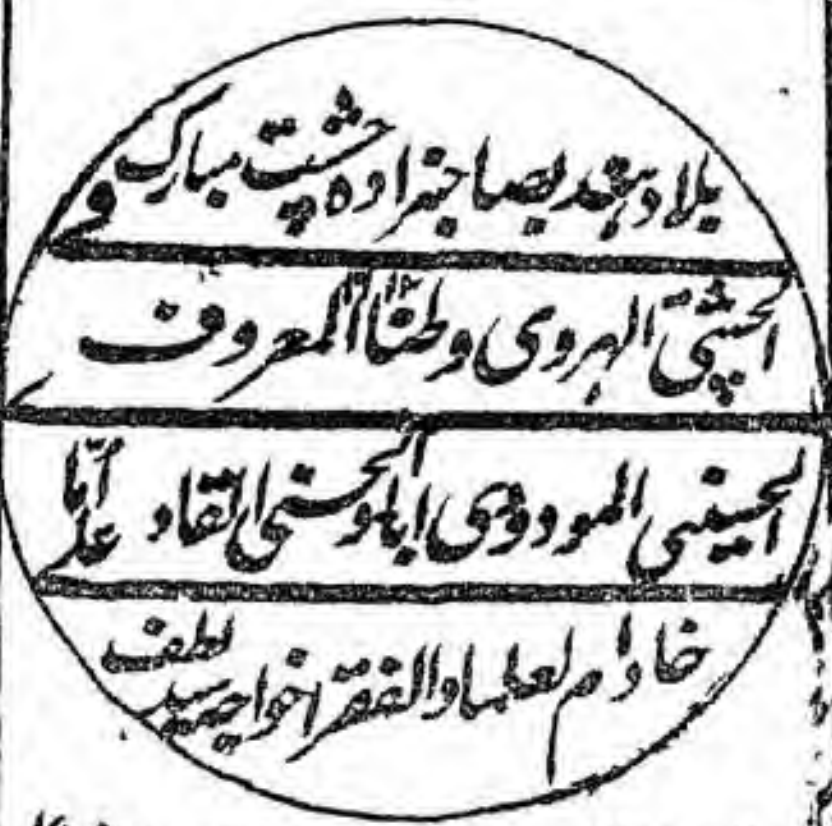 بلاد هند بصاحبزاده چشت مبارک و
الچشتی الهروی وطنًا المعروف
الحسینی المودودی ابا والحسنی القاد امّا علی
خادم لعلما والفقرا خواجه سید لطف